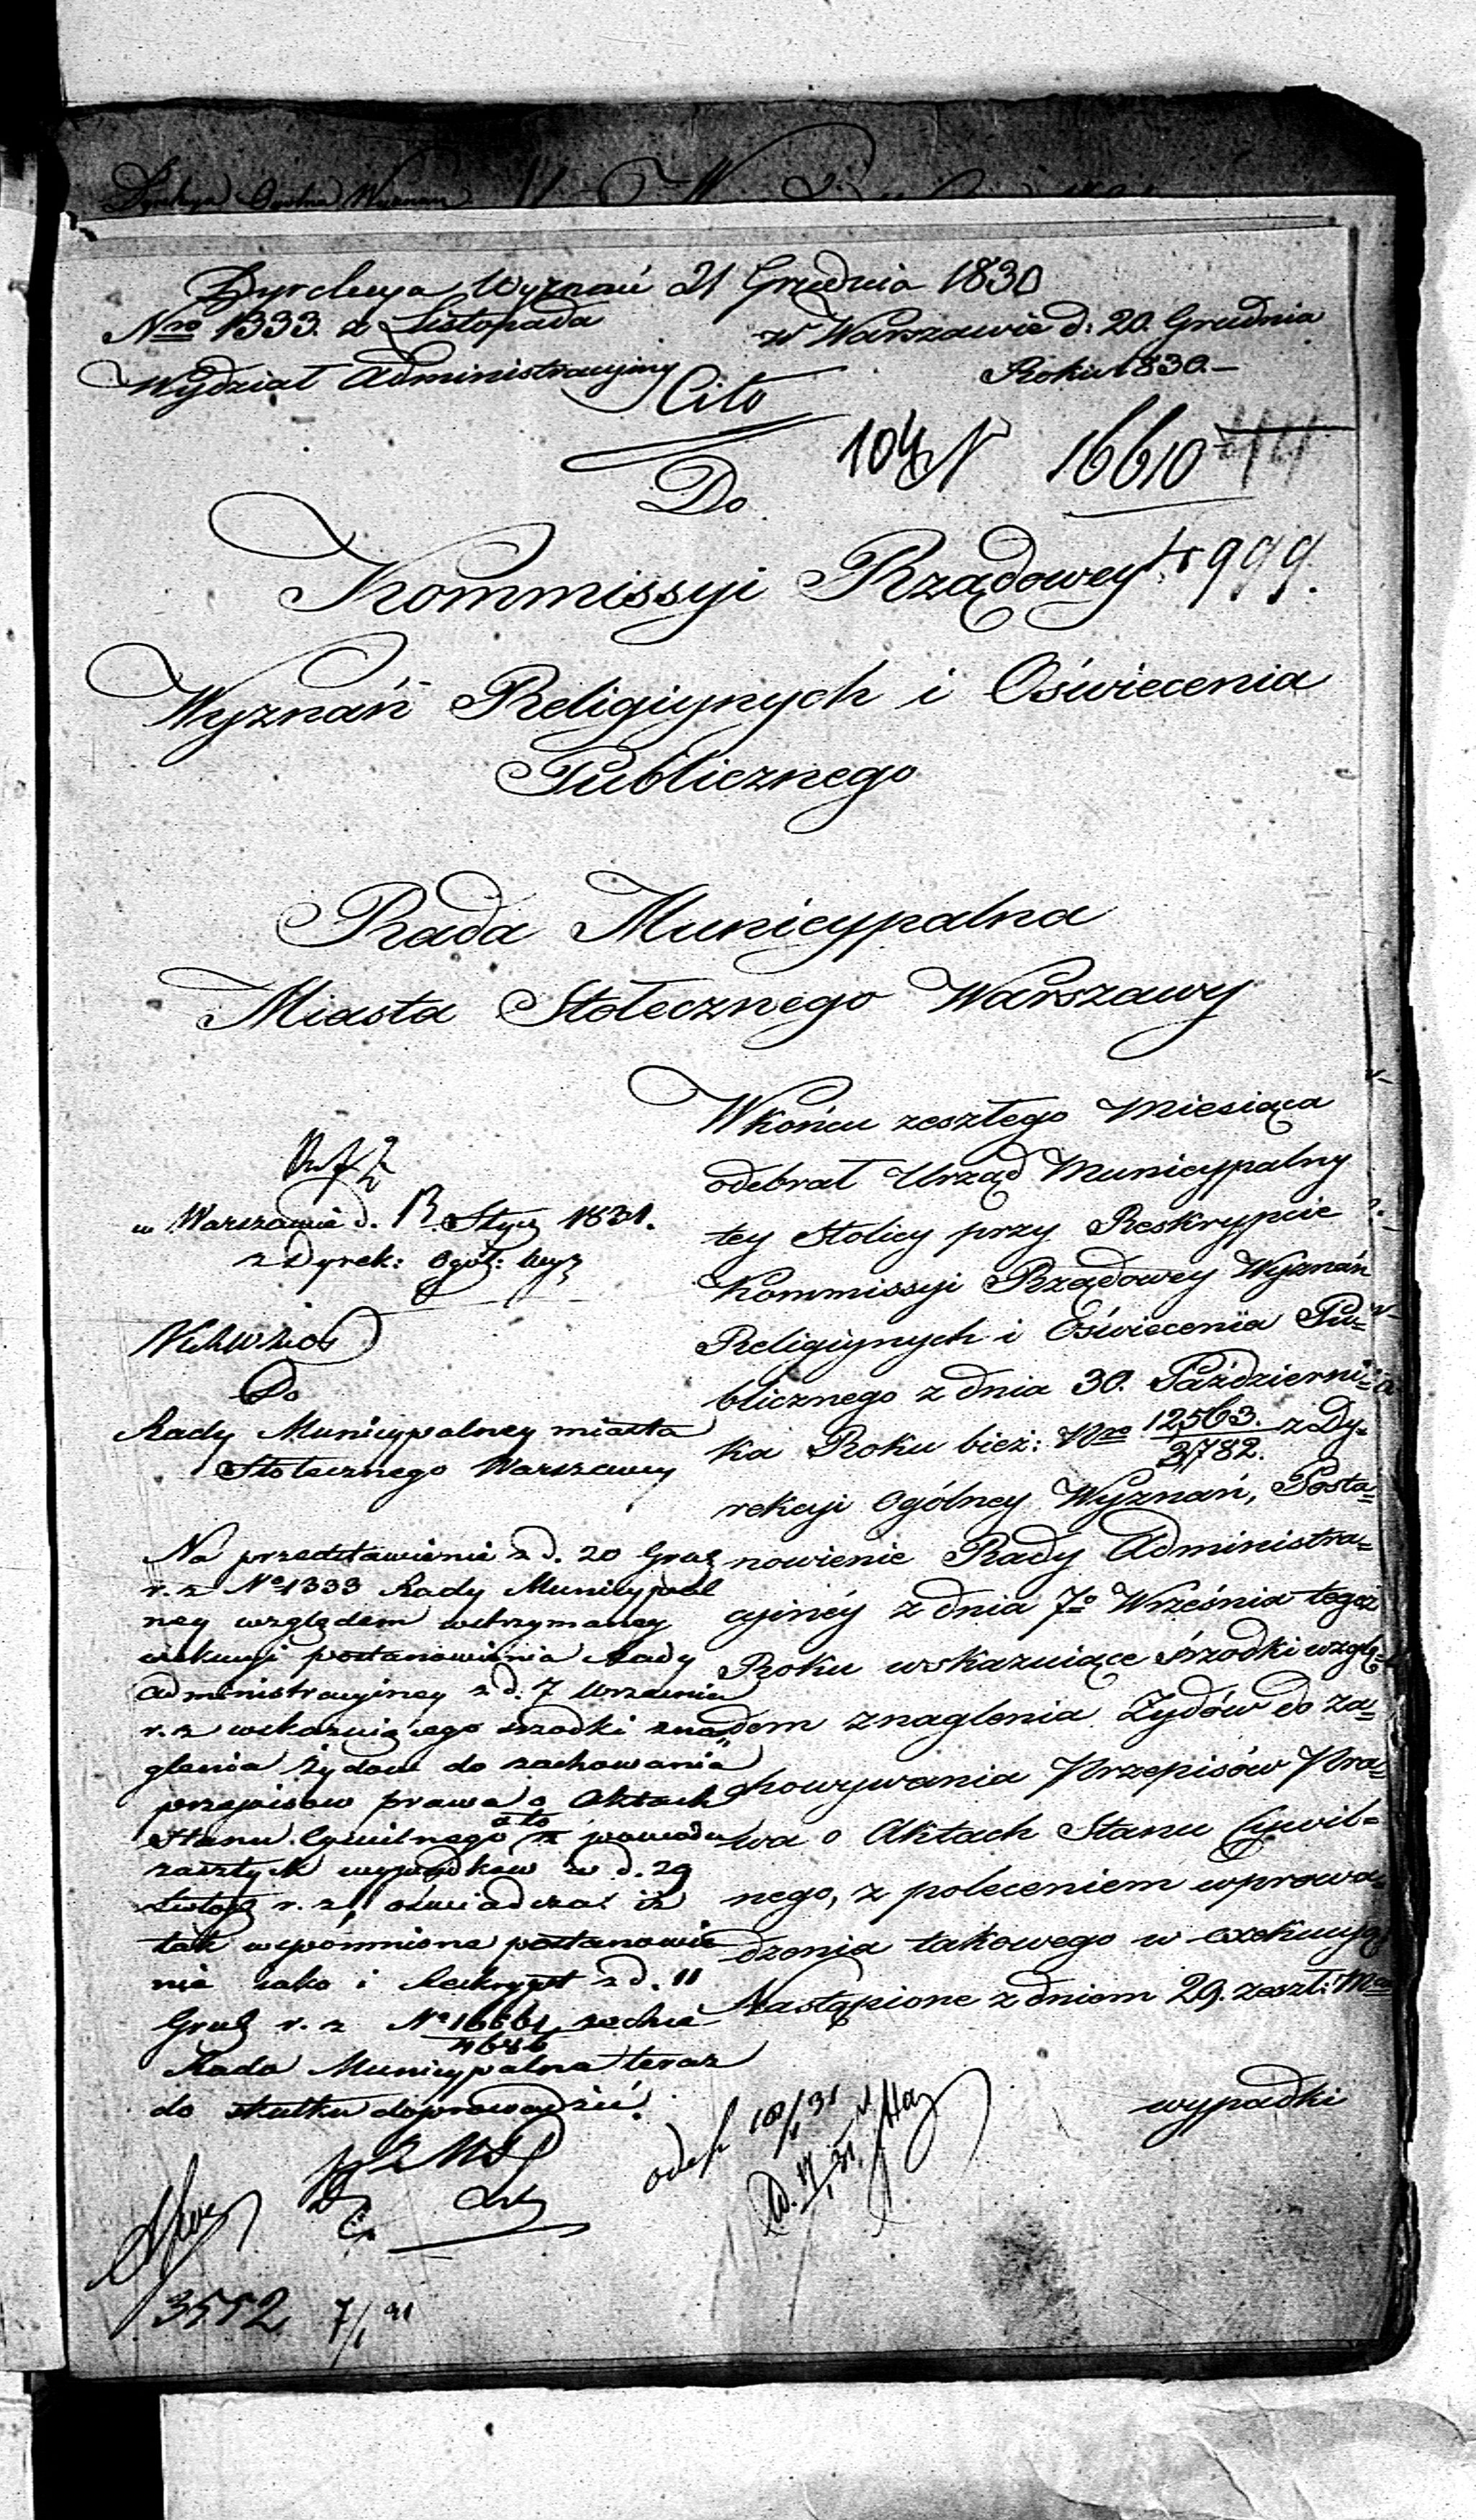 Dyrekcya Ogólna Wyznań
Dyrekcya Wyznań 21 Grudnia 1830
Nro 1333. z Listopada
w Warszawie d: 20. Grudnia
Wydział Administracyjny
Roku 1830.—
Cito
16610
Do
4999.
Kommissyi Rządowey
Wyznań Religiynych i Oświecenia
Publicznego
Rada Municypalna
Miasta Stołecznego Warszawy
W końcu zeszłego Miesiąca
odebrał Urząd Municypalny
tey Stolicy przy Reskrypcie
Kommissyi Rządowey Wyznań
Religiynych i Oświecenia Pu=
blicznego z dnia 30. Październi=
ka Roku bież: Nro 12563./3782. z Dy=
rekcyi Ogólney Wyznań, Posta=
nowienie Rady Administra=
cyinéy z dnia 7o Września tegoż
Roku wskazuiące śrzodki wzglę=
dem znaglenia Żydów do za=
chowywania Przepisów Pra=
wa o Aktach Stanu Cywil=
nego, z poleceniem wprowa=
dzenia takowego w exekucyą.
Nastąpione z dniem 29. zeszł: Mca
wypadki
w Warszawie d. 13 Stycz 1831.
z Dyrek: Ogól: Wyz
Do
Rady Municypalney miasta
Stołecznego Warszawy
Na przedstawienie z d. 20 Grud
r. z No 1333 Rady Municypal
ney względem wstrzymaney
exekucyi postanowienia Rady
Administracyiney z d. 7 Września
r. z wskazuiącego srzodki zna=
glenia żydów do zachowania
przepisow prawa o Aktach
Stanu Cywilnego a to z powodu
zaszłych wypadkow w d. 29
Listop r. z, oświadcza iż
tak wspomnione postanowie
nie iako i Reskrypt z d. 11
Grud r. z No 16661/4686 zechce
Rada Municypalna teraz
do skutku doprowadzić.
3552 7/1 31